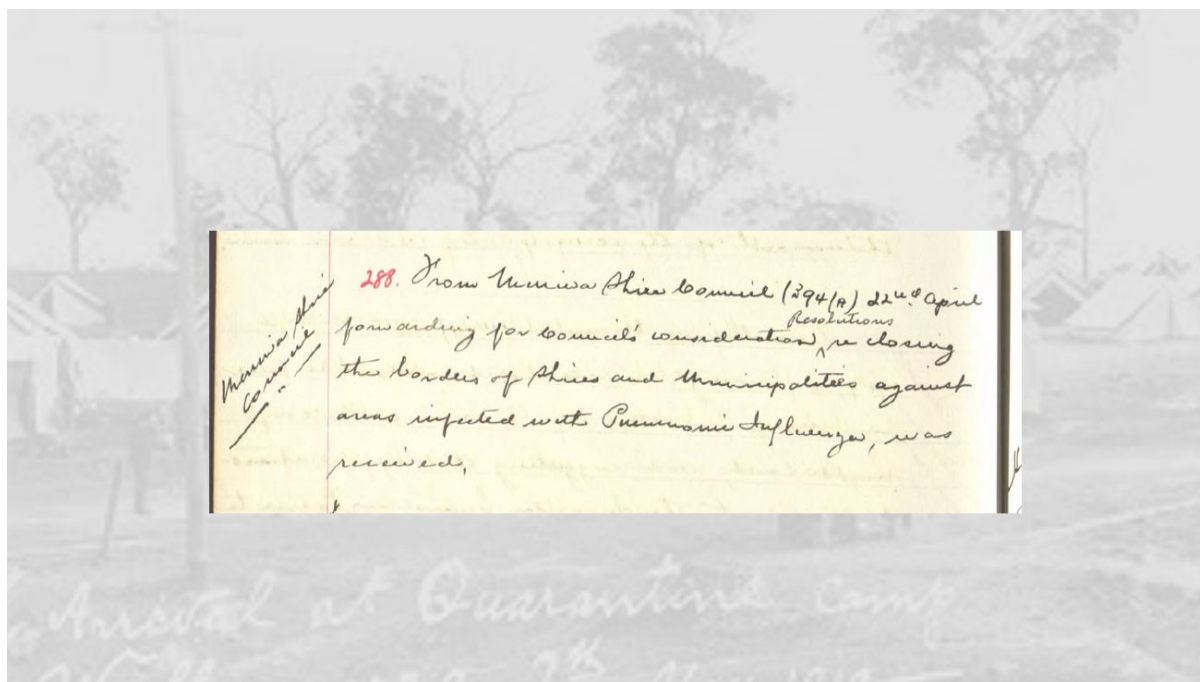 Merriwa Shire
Council
288. From Merriwa Shire Council (394/A) 22nd April
forwarding for Council's consideration Resolutions re closing
the borders of Shires and Municipalities against
areas infected with Pneumonic Influenza, was
received.
Arrival at Quarantine Camp
7th May 1919